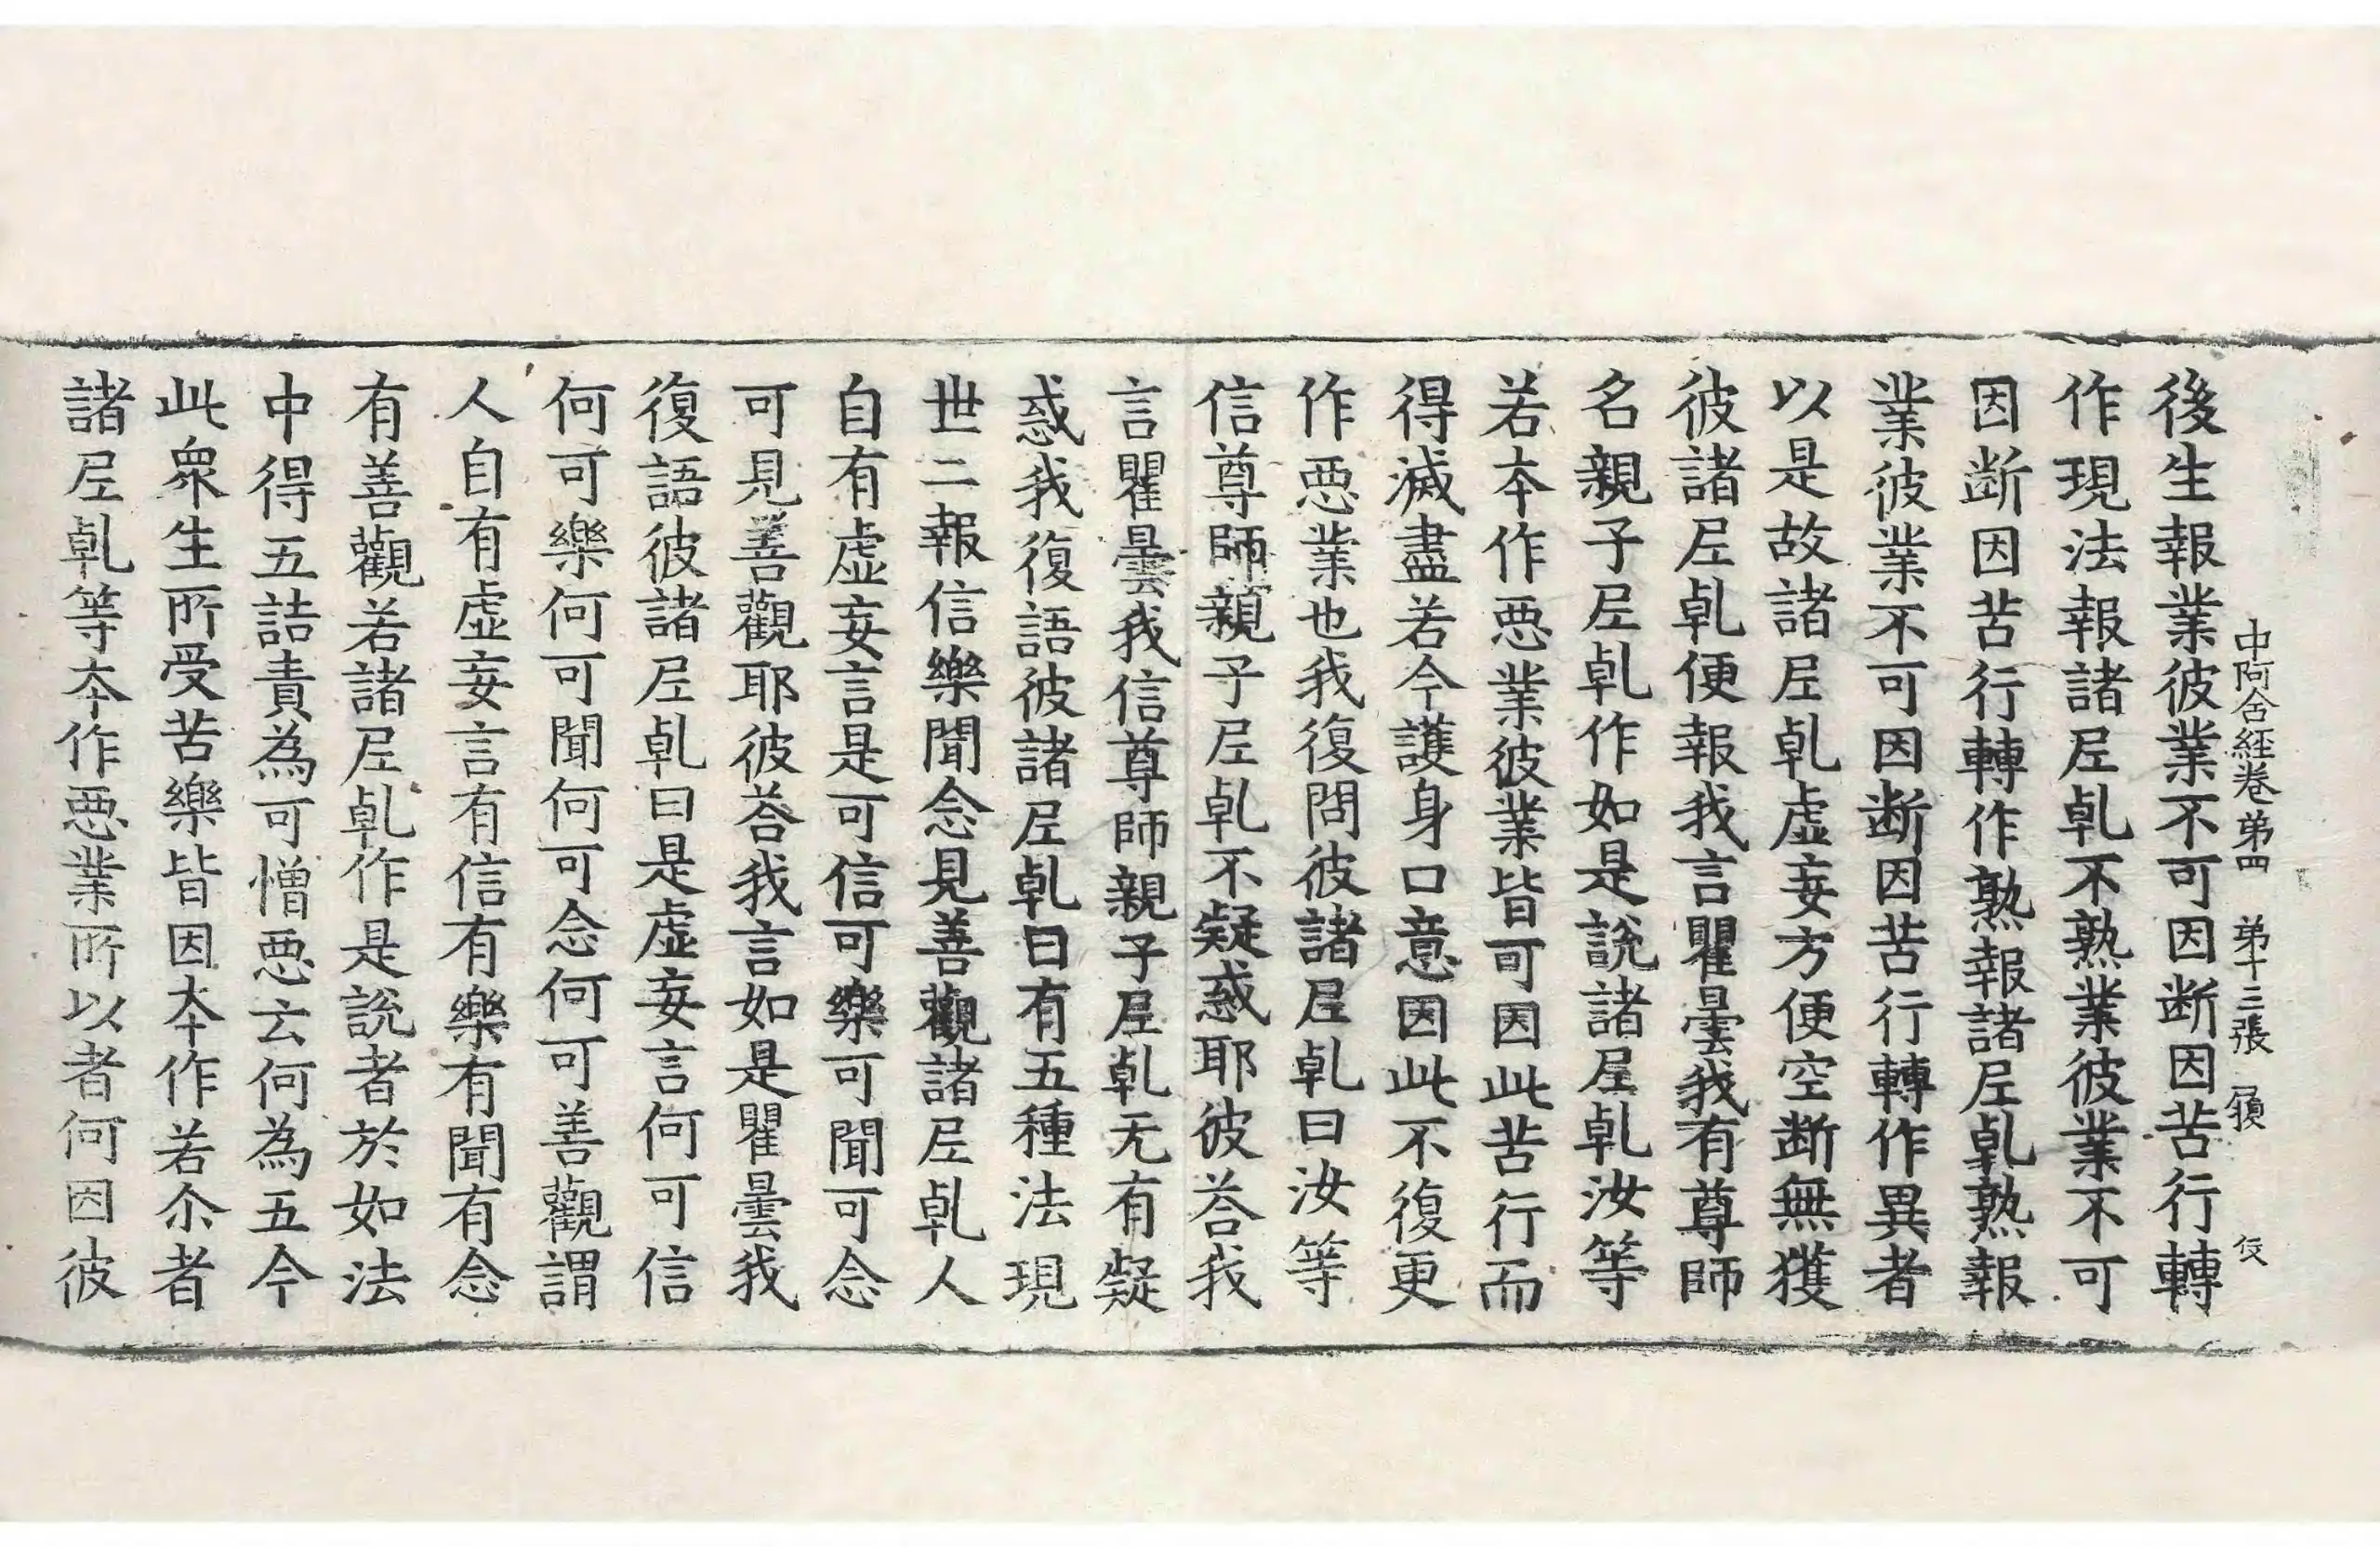 中阿含経卷苐四　苐十三張　㱏　伎
後生報業彼業不可因断因苦行轉
作現法報諸𡰱乹不熟業彼業不可
因断因苦行轉作熟報諸𡰱乹熟報
業彼業不可因断因苦行轉作異者
以是故諸𡰱乹虛妄方便空断無獲
彼諸𡰱乹便報我言瞿曇我有尊師
名親子𡰱乹作如是說諸𡰱乹汝等
若夲作惡業彼業皆可因此苦行而
得滅盡若今護身口意因此不復更
作惡業也我復問彼諸𡰱乹曰汝等
信尊師親子𡰱乹不疑惑耶彼荅我
言瞿曇我信尊師親子𡰱乹无有疑
惑我復語彼諸𡰱乹曰有五種法現
世二報信樂聞念見善觀諸𡰱乹人
自有虛妄言是可信可樂可聞可念
可見善觀耶彼荅我言如是瞿曇我
復語彼諸𡰱乹曰是虛妄言何可信
何可樂何可聞何可念何可善觀謂
人自有虛妄言有信有樂有聞有念
有善觀若諸𡰱乹作是說者於如法
中得五詰責為可憎惡云何為五今
此眾生所受苦樂皆因夲作若尒者
諸𡰱乹等夲作惡業所以者何因彼